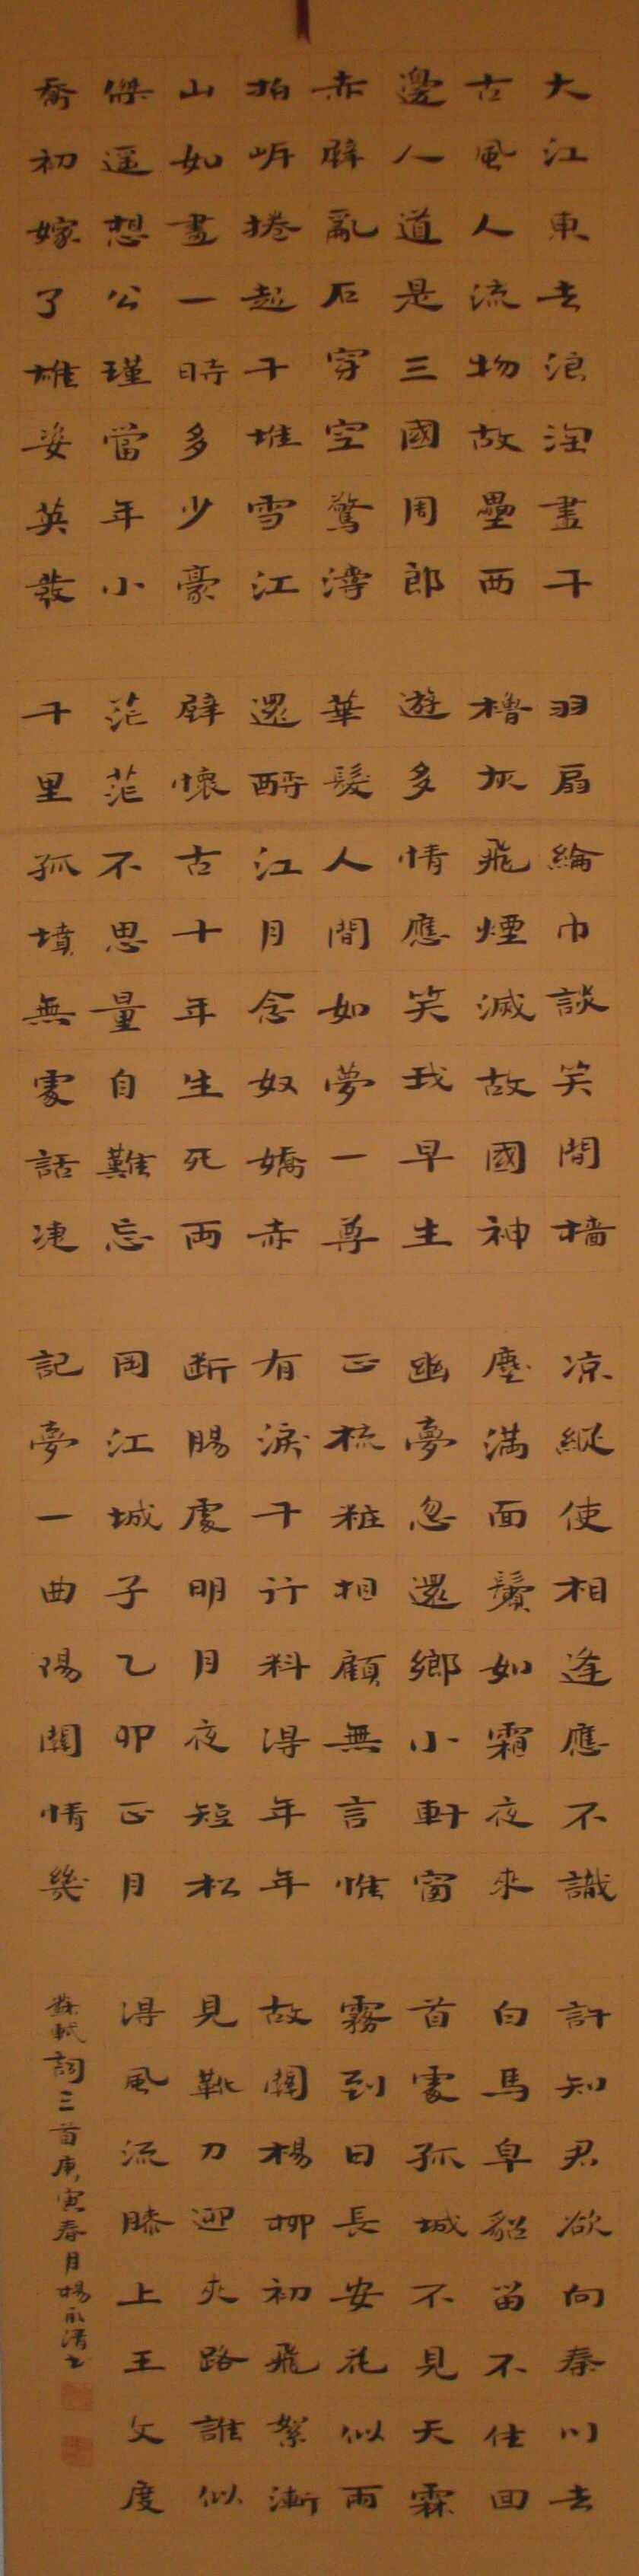 大江東去浪淘盡千
古風人流物故壘西
邊人道是三國周郎
赤壁亂石穿空驚濤
拍岸捲起千堆雪江
山如畫一時多少豪
傑遥想公瑾當年小
喬初嫁了雄姿英發
羽扇綸巾談笑間檣
櫓灰飛煙滅故國神
遊多情應笑我早生
華髮人間如夢一尊
還酹江月念奴嬌赤
壁懷古十年生死两
茫茫不思量自難忘
千里孤墳無處話凄
凉縱使相逢應不識
塵滿面鬢如霜夜來
幽夢忽還鄉小軒窗
正梳粧相顧無言惟
有淚千行料得年年
斷腸處明月夜短松
岡江城子乙卯正月
記夢一曲陽關情幾
許知君欲向秦川去
白馬皁貂留不住回
首處孤城不見天霖
霧到日長安花似雨
故關楊柳初飛絮漸
見靴刀迎夾路誰似
得風流膝上王文度
蘇軾詞三首庚寅春月楊永清书